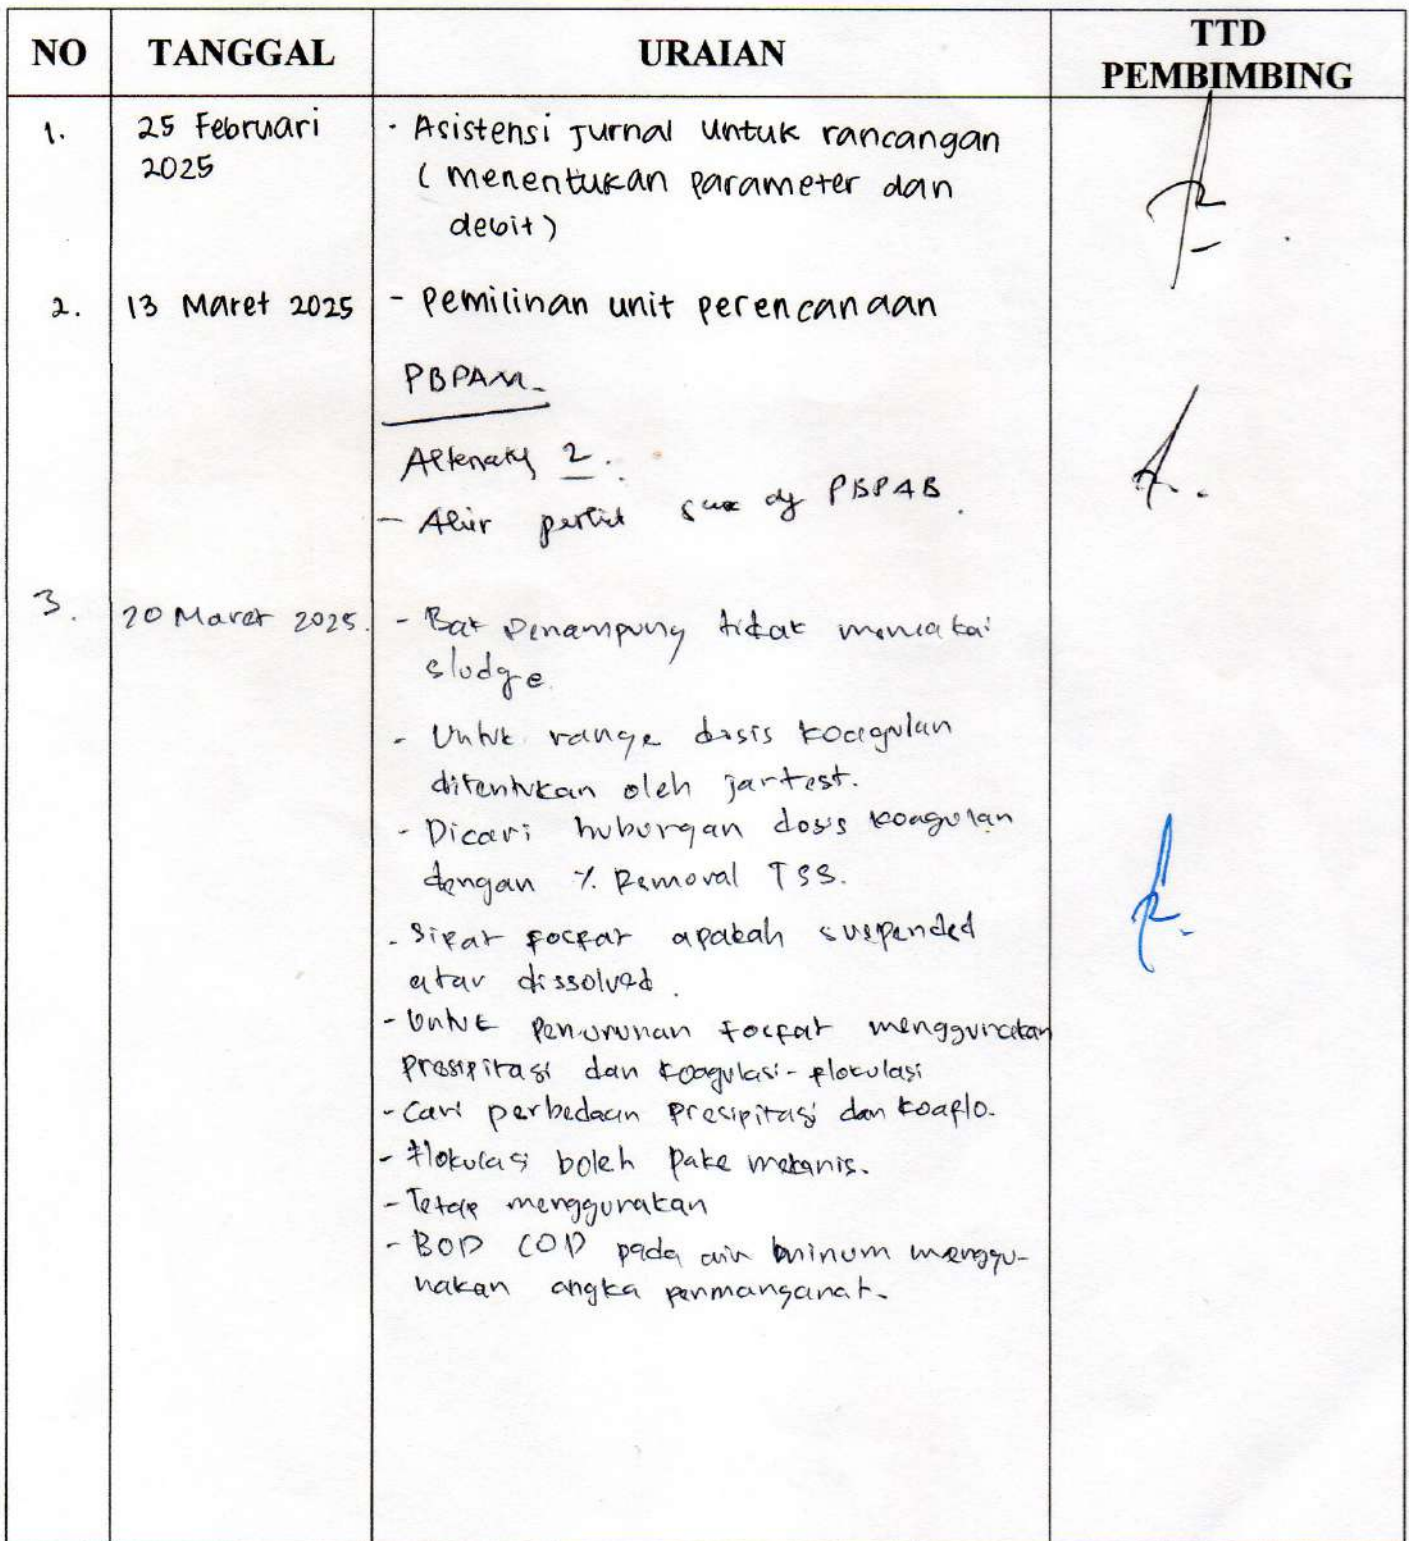 NO TANGGAL URAIAN TTD PEMBIMBING
1. 25 Februari 2025
- Asistensi Jurnal untuk rancangan
( menentukan parameter dan
debit )
2. 13 Maret 2025 - Pemilihan unit perencanaan
PBPAM
Alternatif 2.
- Alir PBPAB.
3. 20 Maret 2025. - Bak Penampung tidak
sludge.
- Untuk range dosis koagulan
ditentukan oleh jartest.
- Dicari hubungan dosis koagulan
dengan % Removal TSS.
- Sifat fosfat apakah suspended
atau dissolved.
- Untuk Penurunan fosfat menggunakan
presipitasi dan koagulasi-flokulasi
- Cari perbedaan Presipitasi dan koaflo.
- Flokulasi boleh pake mekanis.
- Tetap menggunakan
- BOD COD pada air minum menggu-
nakan angka permanganat.